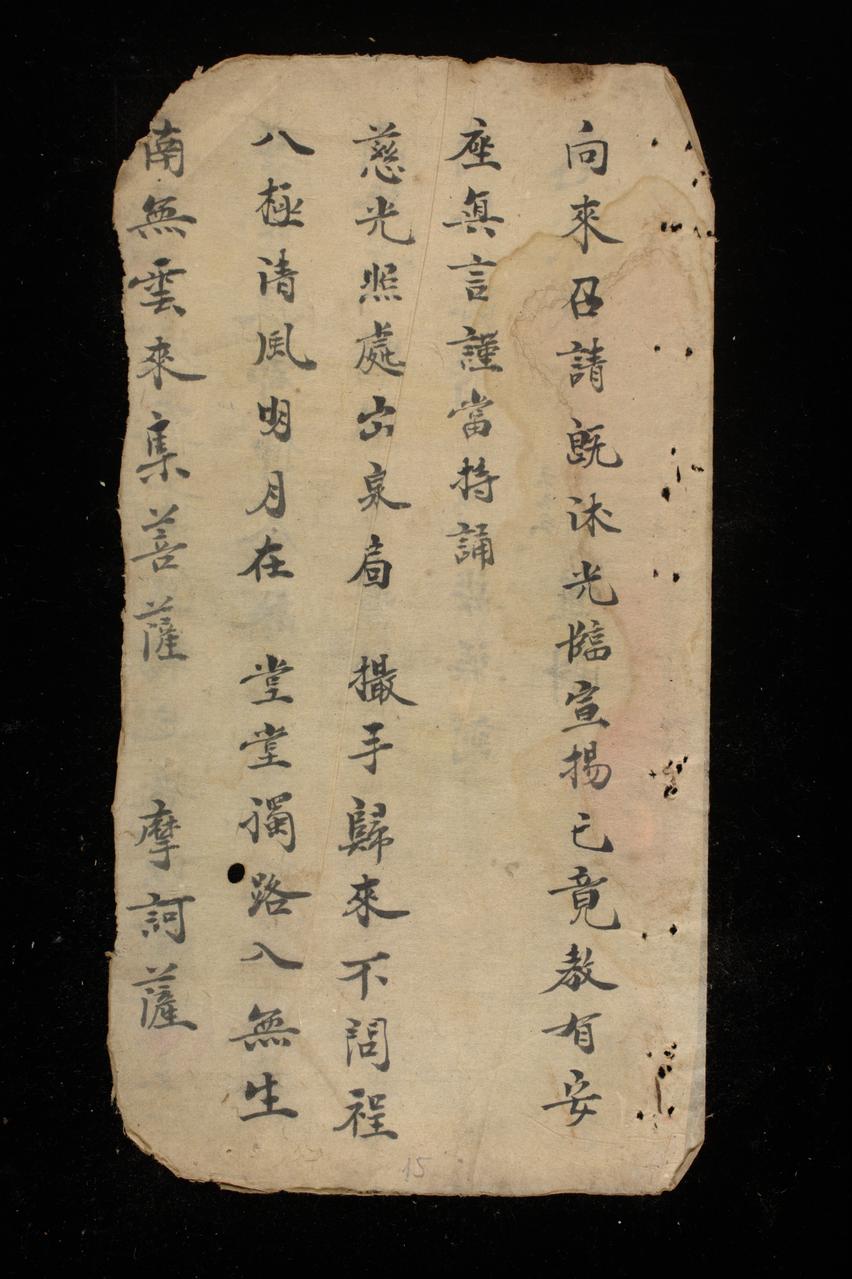 向來召請既沐光臨宣揚已竟教有安
座真言謹當持誦
慈光照處出泉扃 撮手歸來不問程
八極清風明月在 堂堂獨路入無生
南無雲來集菩薩 摩訶薩
15